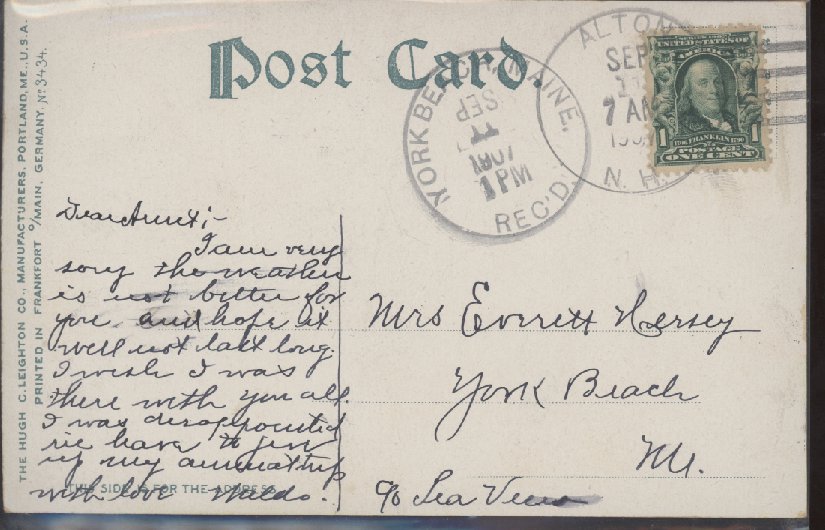 Post Card.
THE HUGH C. LEIGHTON CO., MANUFACTURERS, PORTLAND, ME., U.S.A.
PRINTED IN FRANKFORT O/MAIN, GERMANY. No 3434.
YORK BEACH, MAINE.
SEP
11
1907
1 PM
REC'D.
ALTON
SEP
11
7 AM
190
N. H.
UNITED STATES OF
AMERICA
1 FRANKLIN 1
POSTAGE
ONE CENT
Dear Aunt;-
I am very
sorry the weather
is not better for
you and hope it
will not last long.
I wish I was
there with you all.
I was disappointed
to give
up my annual trip
with love Waldo.
THIS SIDE IS FOR THE ADDRESS
Mrs Everett Hersey
York Beach
Me.
c/o Sea View